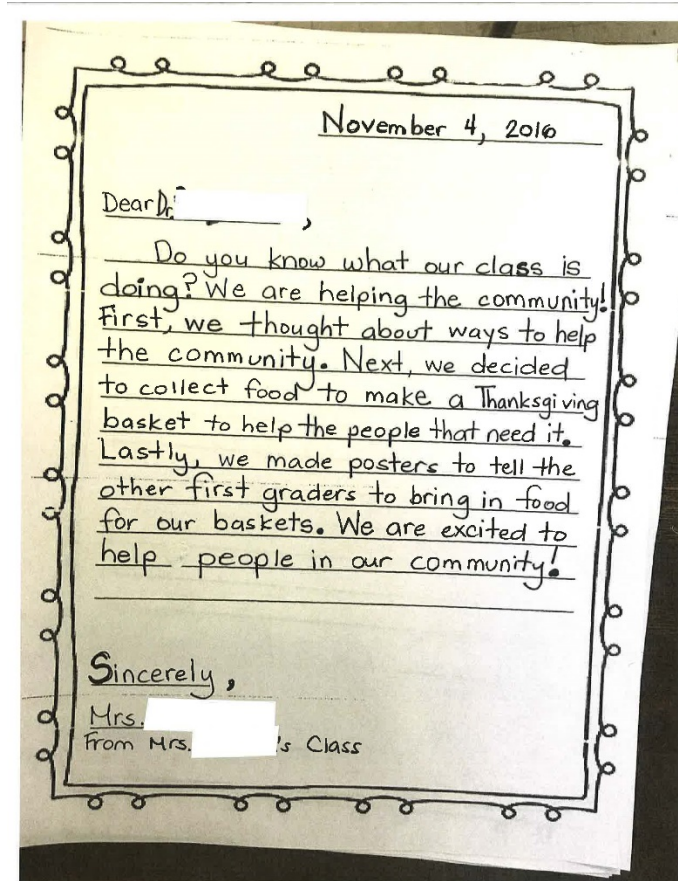 November 4, 2016
Dear Dr.          ,
Do you know what our class is
doing? We are helping the community!
First, we thought about ways to help
the community. Next, we decided
to collect food to make a Thanksgiving
basket to help the people that need it.
Lastly, we made posters to tell the
other first graders to bring in food
for our baskets. We are excited to
help people in our community!
Sincerely,
Mrs.
From Mrs.          's Class